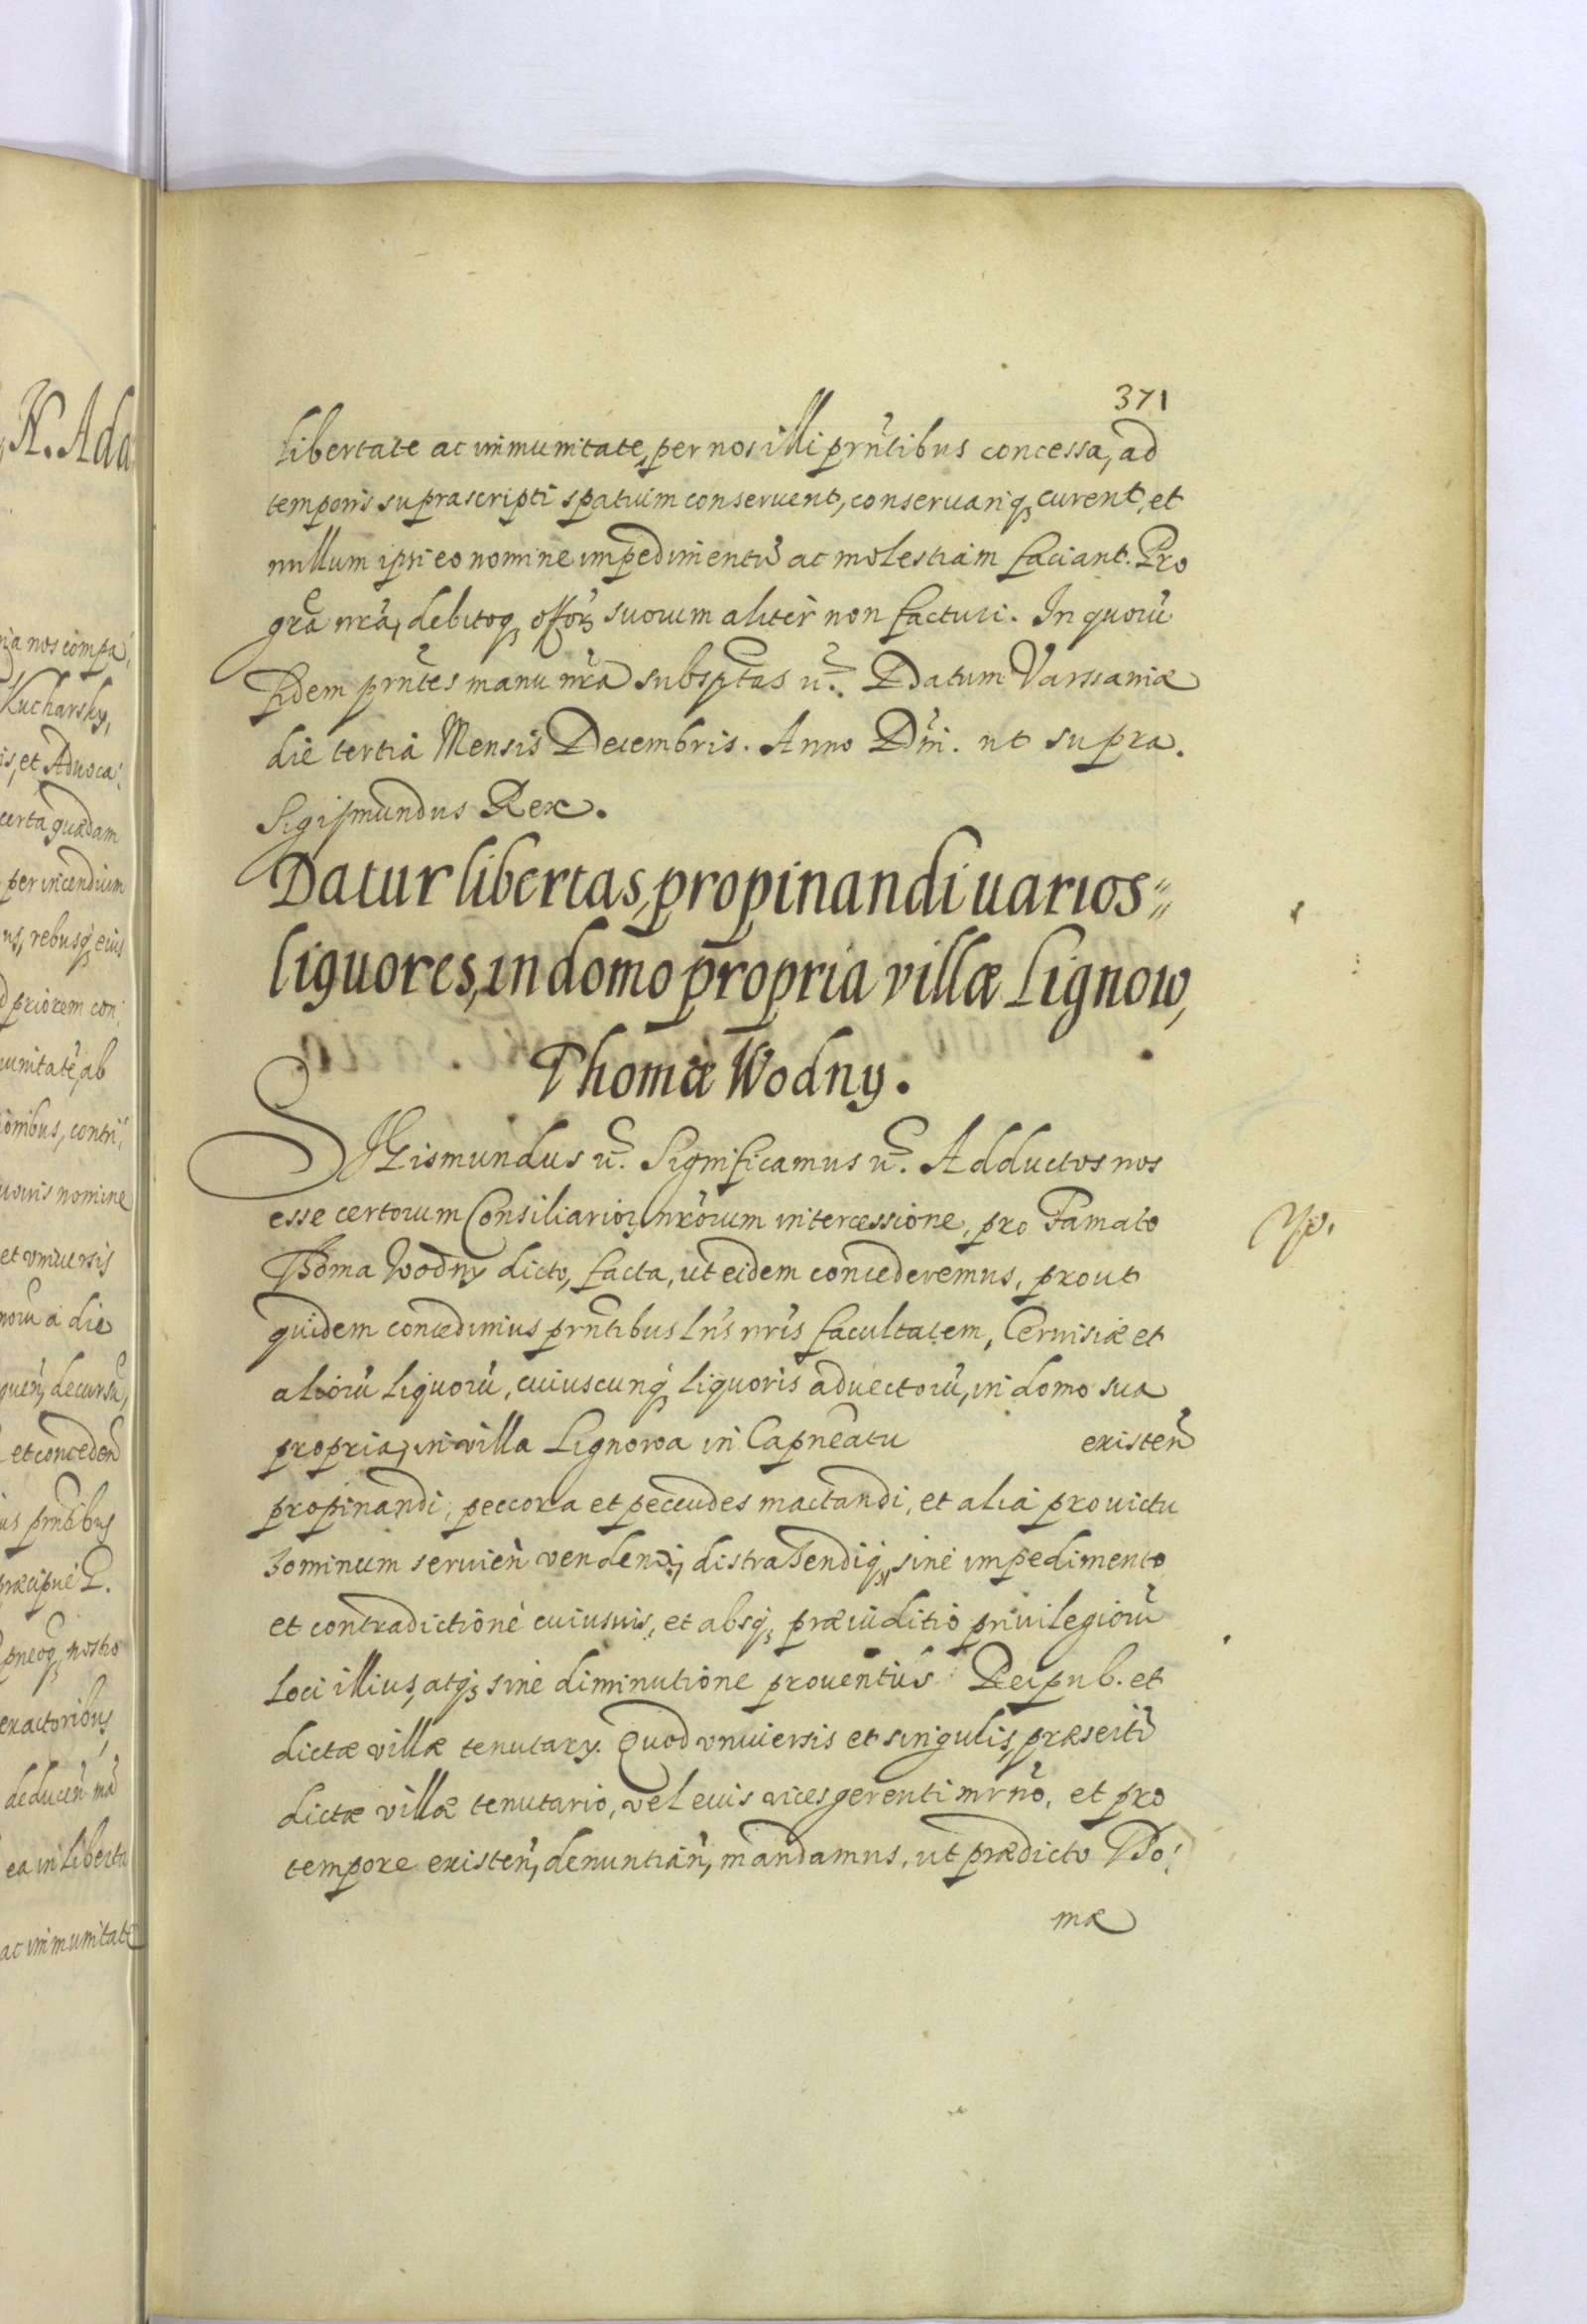 371
libertate ac immunitate, per nos illi prñtibus concessa, ad
temporis suprascripti spatium conseruent, conseruariq; curent, et
nullum ipsi eo nomine impedimentũ ac molestiam faciant. Pro
gr̃a nr̃a, debitoq; offõr; suorum aliter non facturi. In quorũ
fidem prñtes manu nr̃a subsp̃tas ũ. Datum Varssauiæ
die tertia Mensis Decembris. Anno Dñi. ut supra.
Sigismundus Rex.
Datur libertas, propinandi uarios
liquores, in domo propria villæ Lignow,
Thomæ Wodny.
SIGismundus ũ. Significamus ũ. Adductos nos
esse certorum Consiliarior; nr̃orum intercessione, pro Famato
Thoma Wodny dicto, facta, ut eidem concederemus, prout
quidem concedimus prñtibus Lr̃is nr̃is facultatem, Ceruisiæ et
aliorũ liquorũ, cuiuscunq; liquoris aduectorũ, in domo sua
propria, in villa Lignowa in Capñeatu existeñ
propinandi, peccora et peccudes mactandi, et alia pro uictu
hominum seruieñ vendendi, distrahendiq; sine impedimento
et contradictione cuiusuis, et absq; præiuditio priuilegiorũ
loci illius, atq; sine diminutione prouentus Reipub. et
dictæ villæ tenutary. Quod vniuersis et singulis, præsertĩ
dictæ villæ tenutario, vel euis vices gerenti mrno, et pro
tempore existeñ, denuntiañ, mandamus, ut prædicto Tho:
mæ
H. Ada
ria nos compa:
Kucharsky,
is, et Aduoca:
certa quadam
per incendium
us, rebusq; eius
priorem con:
munitatẽ ab
ionibus, contri:
uouis nomine
et vniuersis
norũ a die
queñ, decursu,
et concedeñ
us prñtibus
præcipue G.
pneoq; nostro
exactoribus,
deduceñ
ea in liberta
ac immunitate